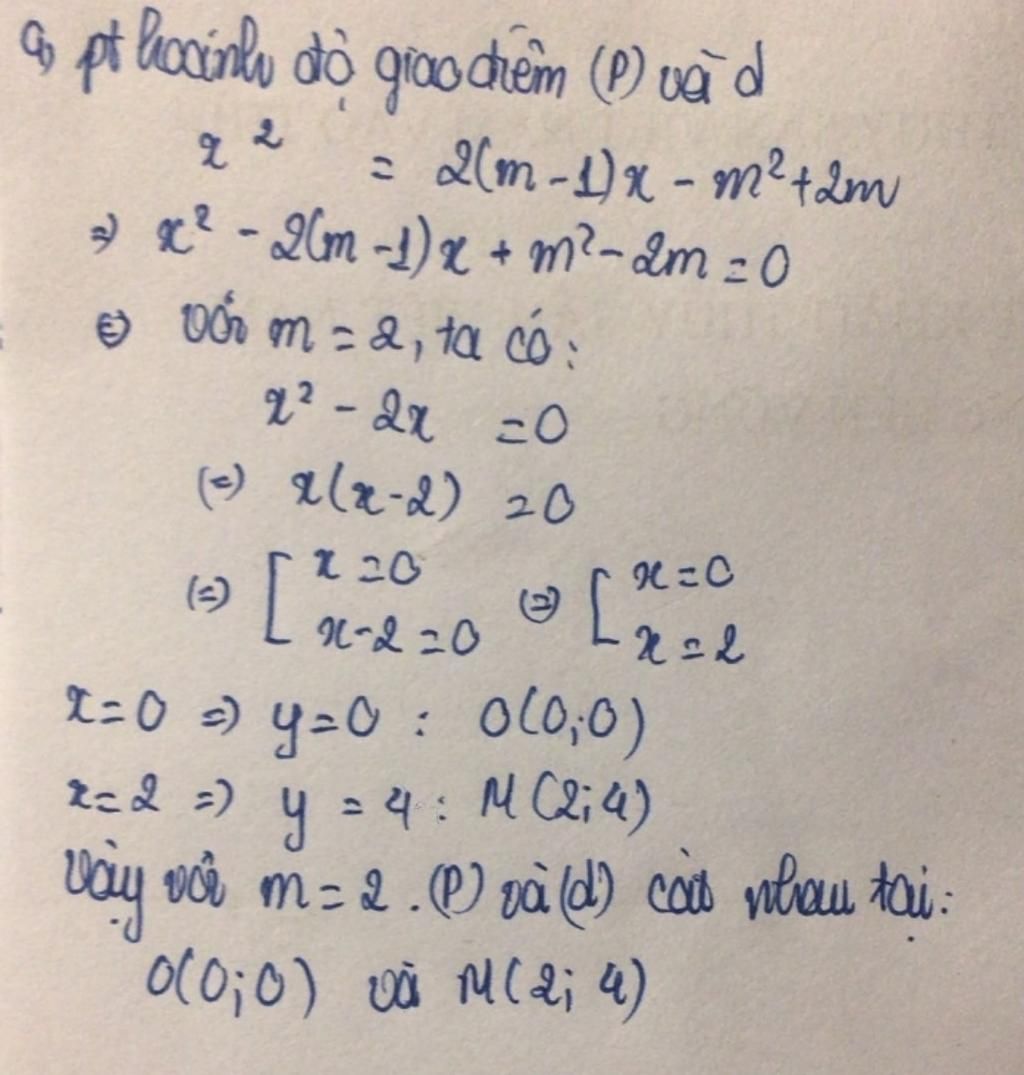 a, pt hoành độ giao điểm (P) và d
x² = 2(m-1)x - m²+2m
⇒ x² - 2(m-1)x + m² - 2m = 0
⇔ với m = 2, ta có:
x² - 2x = 0
⇔ x(x-2) = 0
⇔ [ x = 0 ⇔ [ x = 0
x-2 = 0 x = 2
x = 0 ⇒ y = 0 : O(0;0)
x = 2 ⇒ y = 4 : M(2;4)
Vậy với m = 2 . (P) và (d) cắt nhau tại:
O(0;0) và M(2;4)